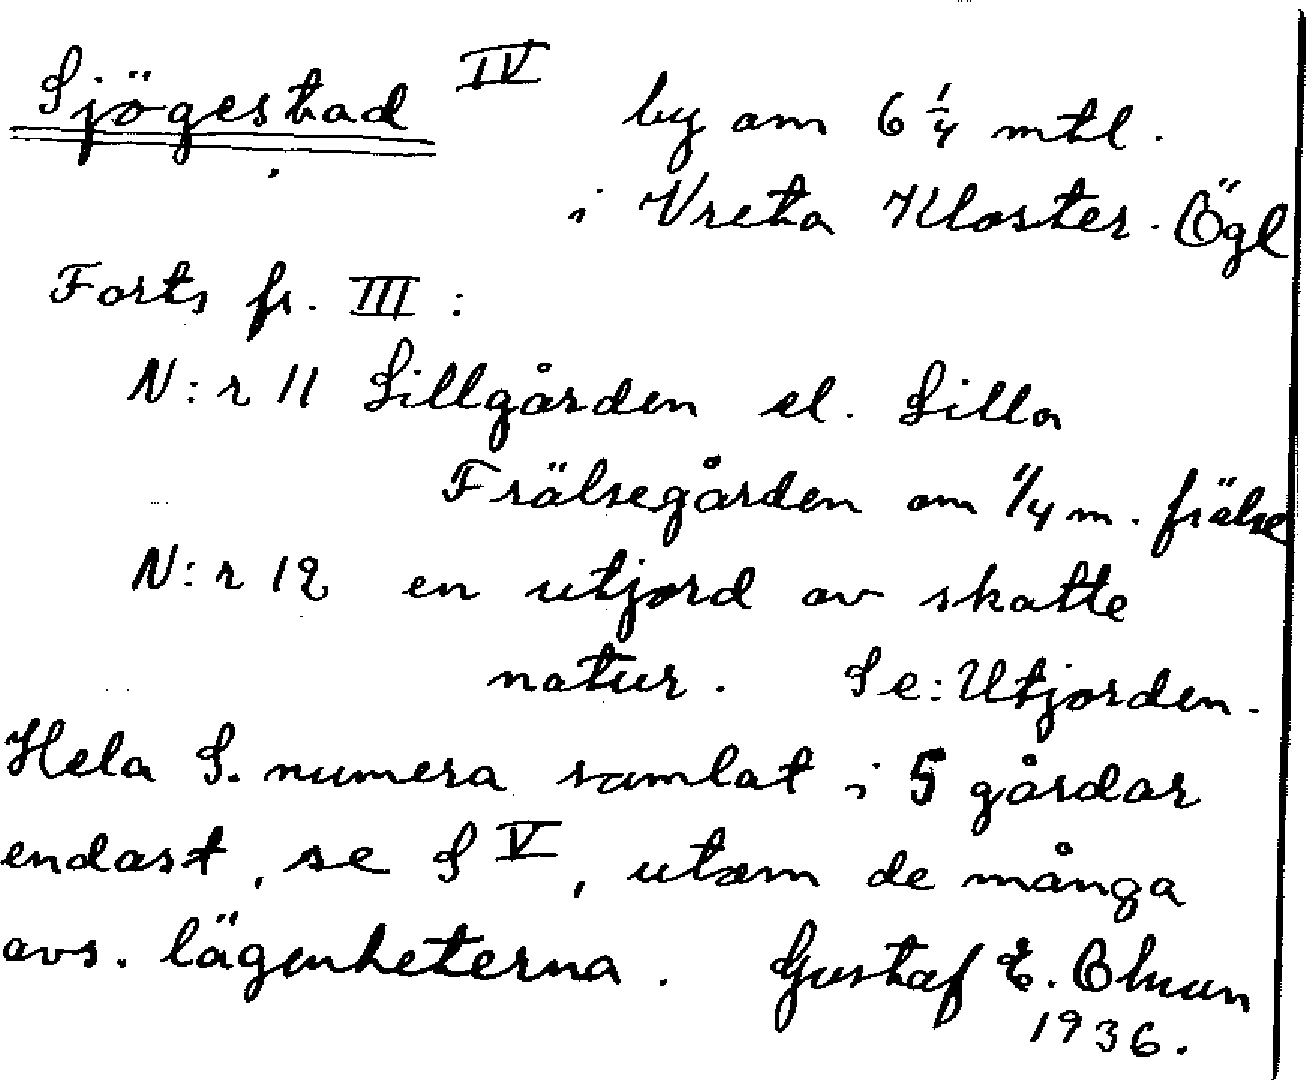 Sjögestad IV by om 6 1/4 mtl.
i Vreta Kloster. Ögl
Forts fr. III :
N:r 11 Lillgården el. Lilla
Frälsegården om 1/4 m. frälse
N:r 12 en utjord av skatte
natur. Se: Utjorden.
Hela S. numera samlat i 5 gårdar
endast, se S V, utom de många
avs. lägenheterna. Gustaf E. Olsson
1936.